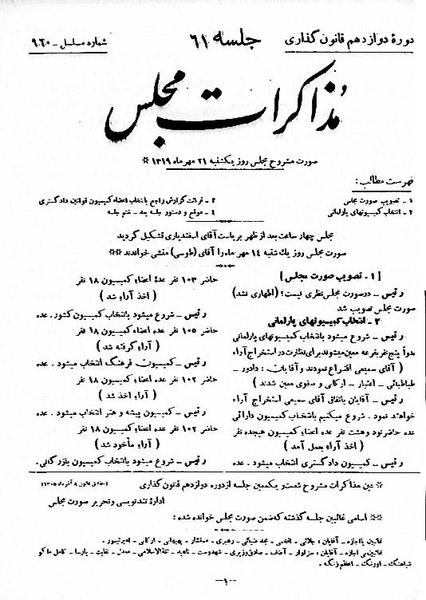 دورهٔ دوازدهم قانون گذاری
جلسه ۶۱
شماره مسلسل ـ ۹۶۰
مذاکرات مجلس
صورت مشروح مجلس روز یکشنبه ۲۱ مهر ماه ۱۳۱۹ *
فهرست مطالب:
۱ ـ تصویب صورت مجلس
۲ ـ انتخاب کمیسیونهای پارلمانی
۳ ـ قرائت گزارش راجع بانتخاب اعضاء کمیسیون قوانین دادگستری
۴ ـ موقع و دستور جلسه بعد ـ ختم جلسه
مجلس چهار ساعت بعد از ظهر بریاست آقای اسفندیاری تشکیل گردید
صورت مجلس روز یک شنبه ۱۴ مهر ماه را آقای (طوسی) منشی خواندند
[ ۱ ـ تصویب صورت مجلس ]
رئیس ـ در صورت مجلس نظری نیست؟ (اظهاری نشد)
صورت مجلس تصویب شد
۲ ـ انتخاب کمیسیونهای پارلمانی
رئیس ـ شروع میشود بانتخاب کمیسیونهای پارلمانی
بدواً پنج نفر بقرعه معین میشوند برای نظارت در استخراج آراء
(آقای سمیعی اقتراع نمودند و آقایان : دادور ـ
طباطبائی ـ اعتبار ـ ارگانی و سفوی معین شدند)
رئیس ـ آقایان باتفاق آقای سمیعی استخراج آراء
خواهند نمود . شروع میکنیم بانتخاب کمیسیون دارائی
حاضر نود و هشت نفر عده اعضاء کمیسیون هیجده نفر
(اخذ آراء بعمل آمد)
رئیس ـ کمیسیون دادگستری انتخاب میشود . عده
حاضر ۱۰۳ نفر عدهٔ اعضاء کمیسیون ۱۸ نفر
( اخذ آراء شد )
رئیس ـ شروع میشود بانتخاب کمیسیون کشور . عده
حاضر ۱۰۵ نفر عده اعضاء کمیسیون ۱۸ نفر
(آراء گرفته شد)
رئیس ـ کمیسیون فرهنگ انتخاب میشود . عده
حاضر ۱۰۲ نفر عده اعضاء کمیسیون ۱۸ نفر
(آراء اخذ شد)
رئیس ـ کمیسیون پیشه و هنر انتخاب میشود . عده
حاضر ۱۰۲ نفر عده اعضاء کمیسیون ۱۸ نفر
(آراء مأخوذ شد)
رئیس ـ شروع میشود بانتخاب کمیسیون بازرگانی.
* عین مذاکرات مشروح شصت و یکمین جلسه از دوره دوازدهم قانون گذاری
اداره تندنویسی و تحریر صورت مجلس
** اسامی غائبین جلسه گذشته که ضمن صورت مجلس خوانده شده:
ـ ۱ ـ